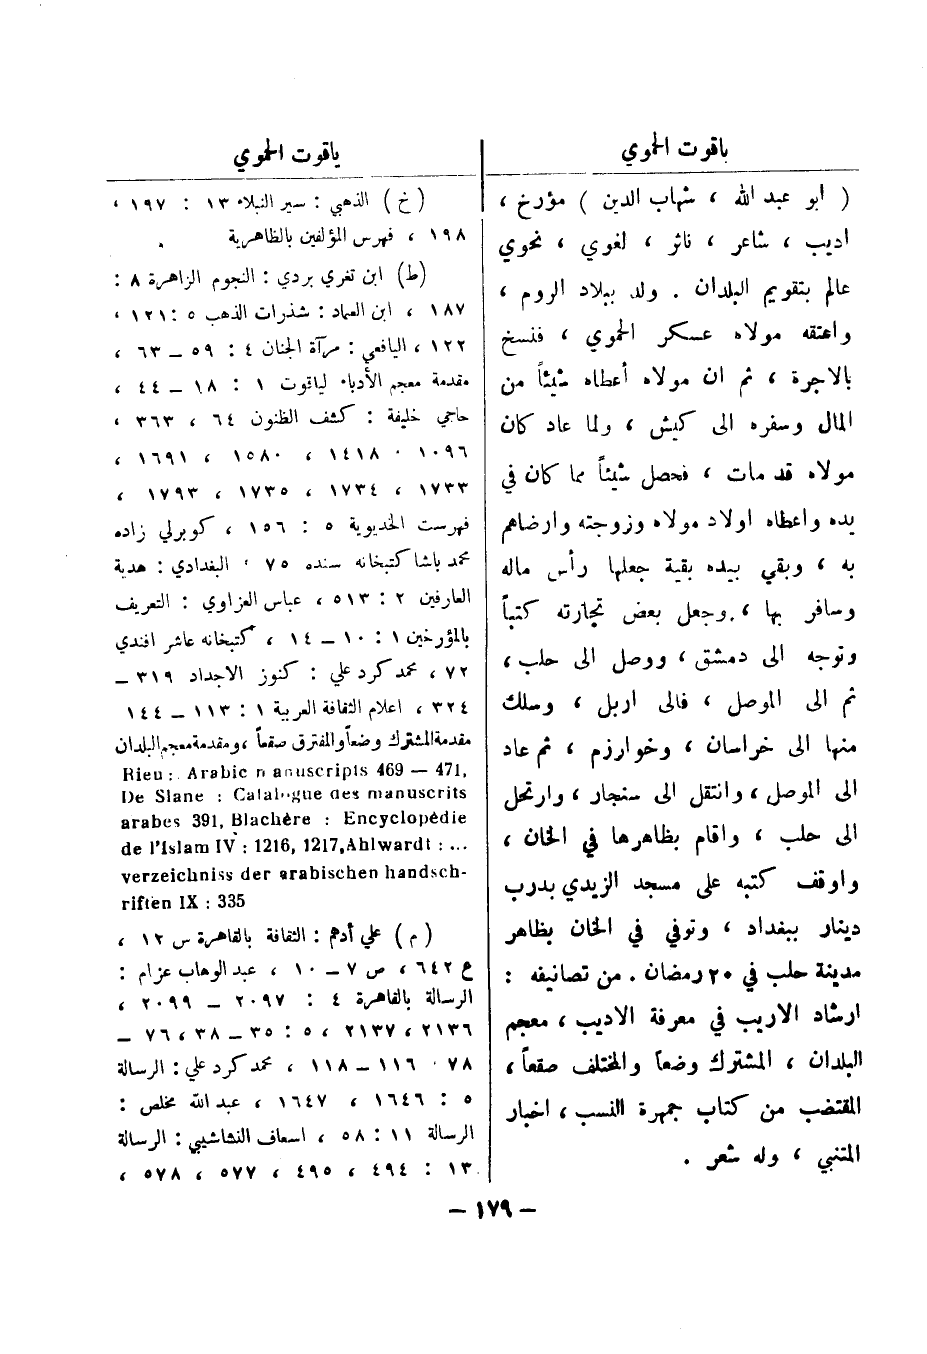 ياقوت الحموي
( ابو عبد الله ، شهاب الدين ) مؤرخ ،
اديب ، شاعر ، ناثر ، لغوي ، نحوي
عالم بتقويم البلدان . ولد ببلاد الروم ،
واعتقه مولاه عسكر الحموي ، فنسخ
بالاجرة ، ثم ان مولاه أعطاه شيئاً من
المال وسفره الى كيش ، ولما عاد كان
مولاه قد مات ، فحصل شيئاً مما كان في
يده واعطاه اولاد مولاه وزوجته وارضاهم
به ، وبقي بيده بقية جعلها رأس ماله
وسافر بها ، وجعل بعض تجارته كتباً
وتوجه الى دمشق ، ووصل الى حلب ،
ثم الى الموصل ، فالى اربل ، وسلك
منها الى خراسان ، وخوارزم ، ثم عاد
الى الموصل ، وانتقل الى سنجار ، وارتحل
الى حلب ، واقام بظاهرها في الخان ،
واوقف كتبه على مسجد الزيدي بدرب
دينار ببغداد ، وتوفي في الخان بظاهر
مدينة حلب في ٢٠ رمضان . من تصانيفه :
ارشاد الاريب في معرفة الاديب ، معجم
البلدان ، المشترك وضعاً والمختلف صقعاً ،
المقتضب من كتاب جمهرة النسب ، اخبار
المتنبي ، وله شعر .
ياقوت الحموي
( خ ) الذهبي : سير النبلاء ١٣ : ١٩٧ ،
١٩٨ ، فهرس المؤلفين بالظاهرية .
(ط) ابن تغري بردي : النجوم الزاهرة ٨ :
١٨٧ ، ابن العماد : شذرات الذهب ٥ : ١٢١ ،
١٢٢ ، اليافعي : مرآة الجنان ٤ : ٥٩ ــ ٦٣ ،
مقدمة معجم الأدباء لياقوت ١ : ١٨ ــ ٤٤ ،
حاجي خليفة : كشف الظنون ٦٤ ، ٣٦٣ ،
١٠٩٦ ، ١٤١٨ ، ١٥٨٠ ، ١٦٩١ ،
١٧٣٣ ، ١٧٣٤ ، ١٧٣٥ ، ١٧٩٣ ،
فهرست الخديوية ٥ : ١٥٦ ، كوبرلي زاده
محمد باشا كتبخانه سنده ٧٥ ، البغدادي : هدية
العارفين ٢ : ٥١٣ ، عباس العزاوي : التعريف
بالمؤرخين ١ : ١٠ ــ ١٤ ، كتبخانه عاشر افندي
٧٢ ، محمد كرد علي : كنوز الاجداد ٣١٩ ــ
٣٢٤ ، اعلام الثقافة العربية ١ : ١١٣ ــ ١٤٤
مقدمة المشترك وضعاً والمفترق صقعاً ، ومقدمة معجم البلدان
Rieu : Arabic manuscripts 469 — 471,
De Slane : Catalogue des manuscrits
arabes 391, Blachère : Encyclopédie
de l'Islam IV : 1216, 1217, Ahlwardt : ...
verzeichniss der arabischen handsch-
riften IX : 335
( م ) علي أدهم : الثقافة بالقاهرة س ١٢ ،
ع ٦٤٢ ، ص ٧ ــ ١٠ ، عبد الوهاب عزام :
الرسالة بالقاهرة ٤ : ٢٠٩٧ ــ ٢٠٩٩ ،
٢١٣٦ ، ٢١٣٧ ، ٥ : ٣٥ ــ ٣٨ ، ٧٦ ــ
٧٨ ، ١١٦ ــ ١١٨ ، محمد كرد علي : الرسالة
٥ : ١٦٤٦ ، ١٦٤٧ ، عبد الله مخلص :
الرسالة ١١ : ٥٨ ، اسعاف النشاشيبي : الرسالة
١٣ : ٤٩٤ ، ٤٩٥ ، ٥٧٧ ، ٥٧٨ ،
– ١٧٩ –